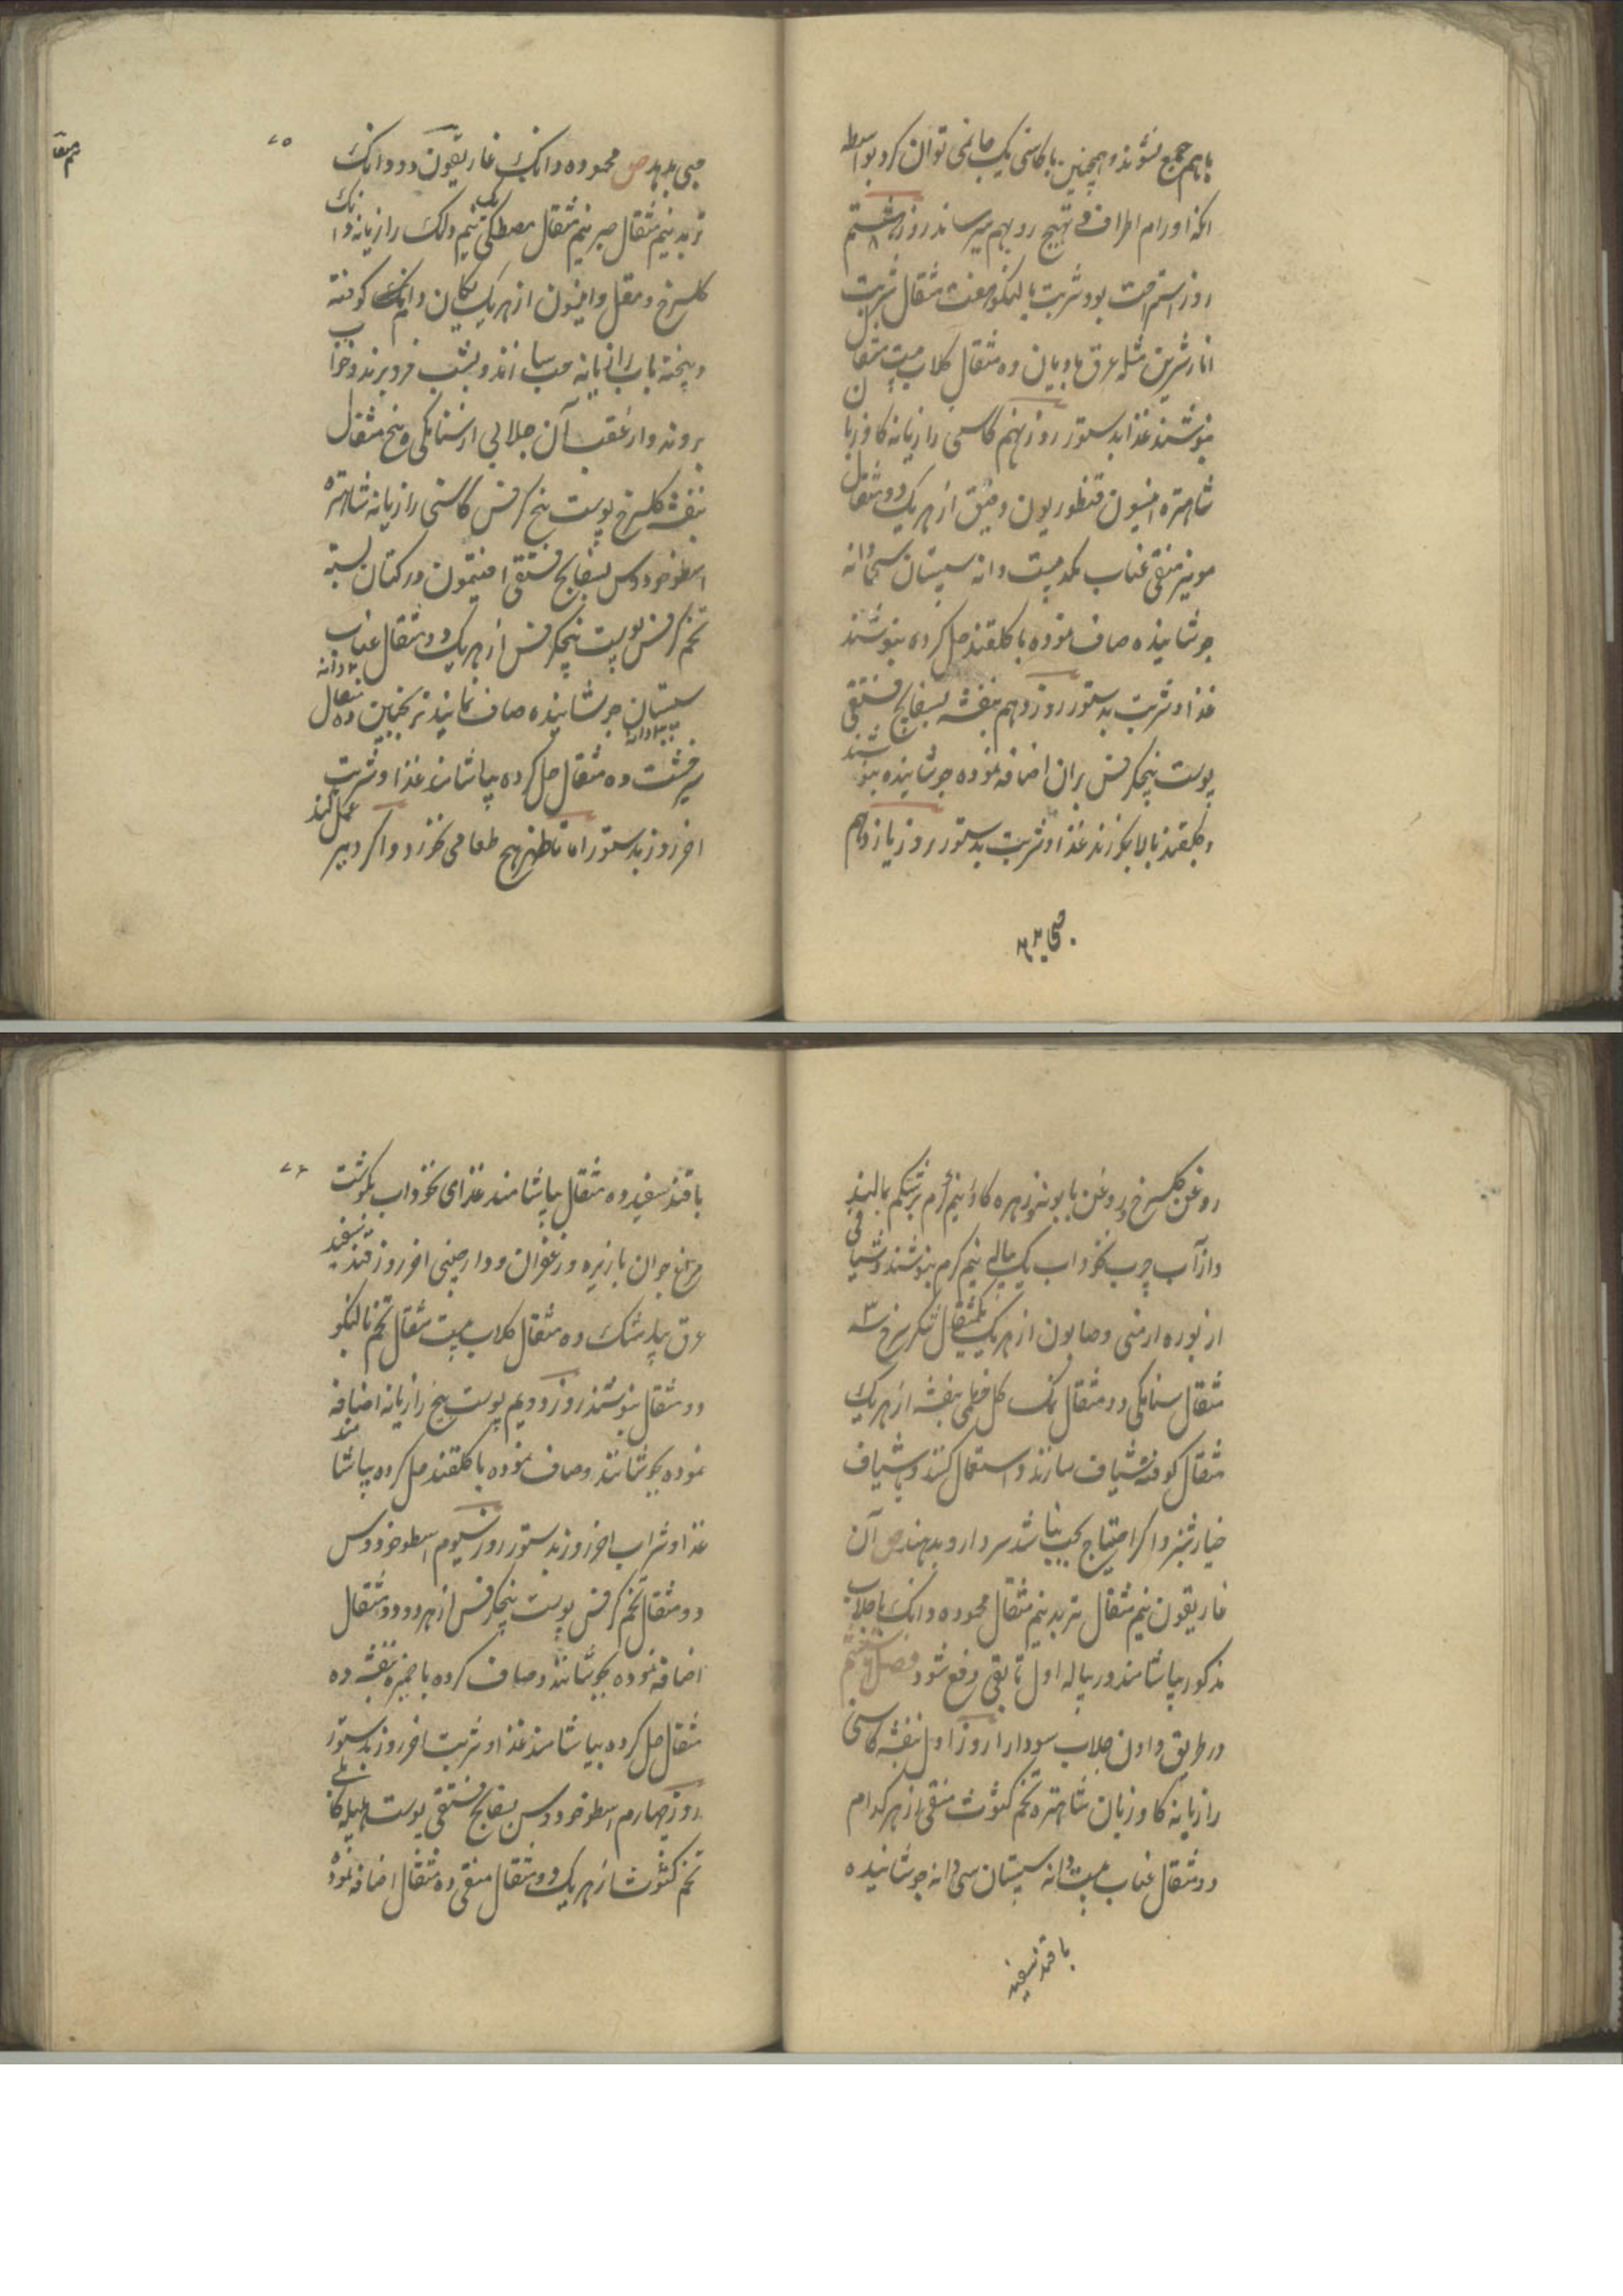 باهم جمع نشوند و همچنین با کاسنی یک جا نمی توان کرد بواسطه
آنکه اورام اطراف و تهیج رو بهم میرساند روز هشتم
روز استراحت بود شربت بالنکو هفت مثقال شربت
انار شیرین مثله عرق بادیان ده مثقال گلاب بیست مثقال
بنوشند غذا بدستور روز نهم کاسنی رازیانه گاوزبان
شاهتره انیسون قنطوریون دقیق از هر یک دو مثقال
مویز منقی عناب بیست دانه سپستان سی دانه
جوشانیده صاف نموده با گلقند حل کرده بنوشند
غذا و شربت بدستور روز دهم بنفشه بسفایج فستقی
پوست بیخ کرفس بران اضافه نموده جوشانیده بنوشند
و گلقند بالا بخورند غذا و شربت بدستور روز یازدهم
حبی بدهد
۷۵
حبی بدهد ص محموده دانک غاریقون دو دانک
تربد نیم مثقال صبر نیم مثقال مصطکی نیم دانک رازیانه دانک
گلسرخ و مقل و انیسون از هر یک دانک کوفته
و پخته باب رازیانه حب سازند و بشب فرو برند و خواب
روند و از عقب آن جلابی از سنامکی پنج مثقال
بنفشه گلسرخ پوست بیخ کرفس کاسنی رازیانه شاهتره
اسطوخودوس بسفایج فستقی افتیمون در کتان بسته
تخم کرفس پوست بیخ کرفس از هر یک دو مثقال عناب ۲۰ دانه
سپستان ۳۰ دانه جوشانیده صاف نمایند ترنجبین ده مثقال
شیرخشت ده مثقال حل کرده بیاشامند غذا و شربت
آخر روز بدستور اما تا ظهر هیچ طعامی نخورد و اگر دیر عمل کند
روغن گلسرخ و روغن بابونه و زهره گاو نیم گرم بر شکم بمالند
و از آب چرب نخود آب یک پیاله نیم گرم بنوشند و شیافی
از بوره ارمنی و صابون از هر یک یکمثقال شکر سرخ سه ۳
مثقال سنامکی دو مثقال نمک گل خطمی بنفشه از هر یک
مثقال کوفته شیاف سازند و استعمال کنند و یا شیاف
خیارشنبر و اگر احتیاج بحب نباشد سر دارو بدهند ص آن
غاریقون نیم مثقال تربد نیم مثقال محموده دانک با جلاب
مذکور بیاشامند در پیاله اول تا بقی دفع شود فصل هشتم
در طریق دادن جلاب سودا را روز اول بنفشه کاسنی
رازیانه گاوزبان شاهتره تخم کثوث منقی از هر کدام
دو مثقال عناب بیست دانه سپستان سی دانه جوشانیده
با قند سفید
۷۶
با قند سفید ده مثقال بیاشامند غذای نخود آب بگوشت
مرغ جوان با زیره و زعفران و دارچینی آخر روز قند سفید
عرق بیدمشک ده مثقال گلاب بیست مثقال تخم بالنکو
دو مثقال بنوشند روز دویم پوست بیخ رازیانه اضافه
نموده بجوشانند و صاف نموده با گلقند حل کرده بیاشامند
غذا و شراب آخر روز بدستور روز سیوم اسطوخودوس
دو مثقال تخم کرفس پوست بیخ کرفس از هر دو دو مثقال
اضافه نموده بجوشانند و صاف کرده با خمیره بنفشه ده
مثقال حل کرده بیاشامند غذا و شربت آخر روز بدستور
روز چهارم اسطوخودوس بسفایج فستقی پوست هلیله کابلی
تخم کثوث از هر یک دو مثقال منقی ده مثقال اضافه نموده